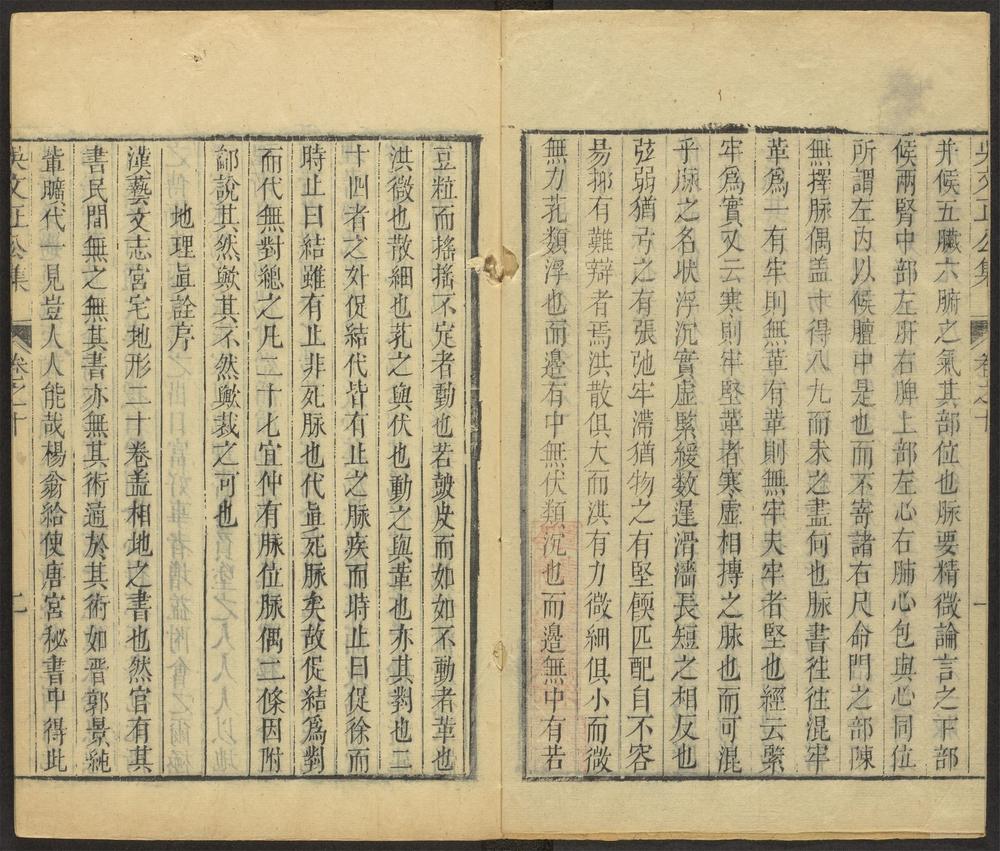 吳文正公集 卷之十 一
并候五臟六腑之氣其部位也脉要精微論言之下部
候兩腎中部左肝右脾上部左心右肺心包與心同位
所謂左內以候膻中是也而不寄諸右尺命門之部陳
無擇脉偶盖十得八九而未之盡何也脉書徃徃混牢
革爲一有牢則無革有革則無牢夫牢者堅也經云緊
牢爲實又云寒則牢堅革者寒虛相搏之脉也而可混
乎脉之名狀浮沉實虛緊緩数遲滑濇長短之相反也
弦弱猶弓之有張弛牢滯猶物之有堅愞匹配自不容
昜揶有難辯者焉洪散俱大而洪有力微細俱小而微
無力芤類浮也而邉有中無伏類沉也而邉無中有若
豆粒而揺揺不定者動也若皷皮而如如不動者革也
洪微也散細也芤之與伏也動之與革也亦其對也二
十四者之外促結代皆有止之脉疾而時止曰促徐而
時止曰結雖有止非死脉也代眞死脉矣故促結爲對
而代無對緫之凡二十七宜仲有脉位脉偶二條因附
鄙說其然歟其不然歟裁之可也
地理眞詮序
漢藝文志宮宅地形二十卷盖相地之書也然官有其
書民間無之無其書亦無其術適於其術如晋郭景純
軰曠代一見豈人人能哉楊翁給使唐宮秘書中得此
吳文正公集 卷之十 二